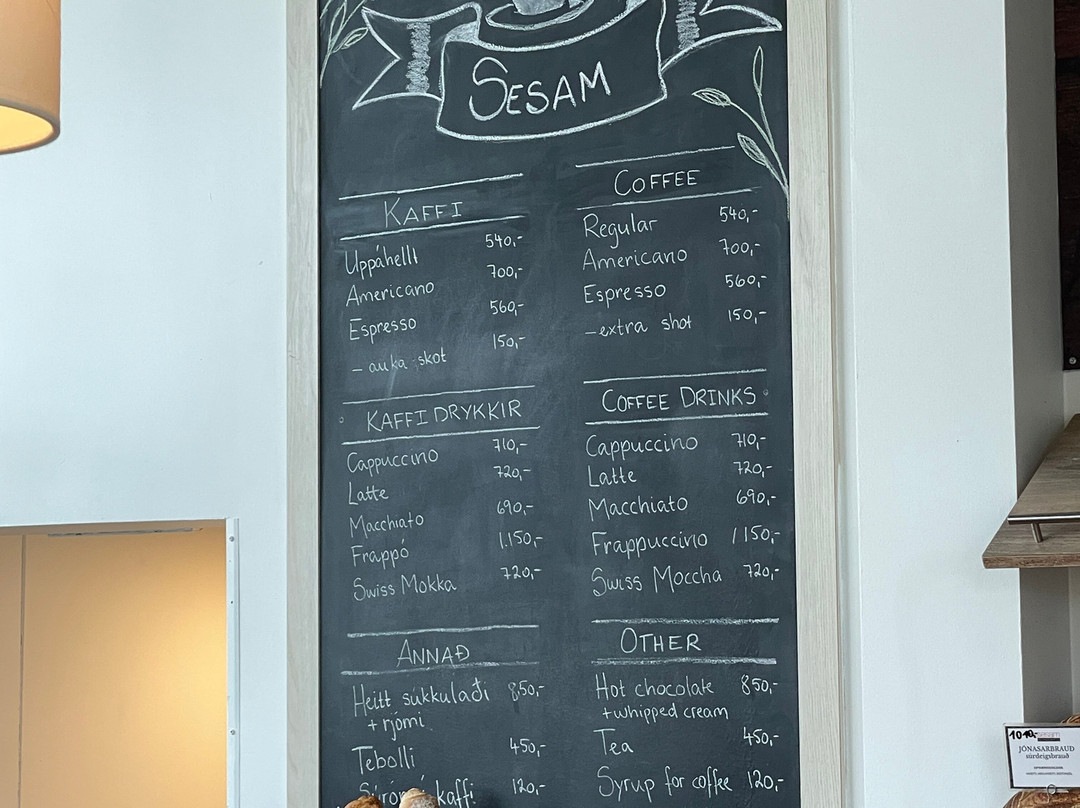 SESAM
KAFFI
Uppáhellt 540,-
Americano 700,-
Espresso 560,-
- auka skot 150,-
KAFFI DRYKKIR
Cappuccino 710,-
Latte 720,-
Macchiato 690,-
Frappó 1.150,-
Swiss Mokka 720,-
ANNAÐ
Heitt súkkulaði 850,-
+ rjómi
Tebolli 450,-
kaffi 120,-
COFFEE
Regular 540,-
Americano 700,-
Espresso 560,-
- extra shot 150,-
COFFEE DRINKS
Cappuccino 710,-
Latte 720,-
Macchiato 690,-
Frappuccino 1150,-
Swiss Moccha 720,-
OTHER
Hot chocolate 850,-
+ whipped cream
Tea 450,-
Syrup for coffee 120,-
1040,- sesam
JÓNASARBRAUÐ
súrdeigsbrauð